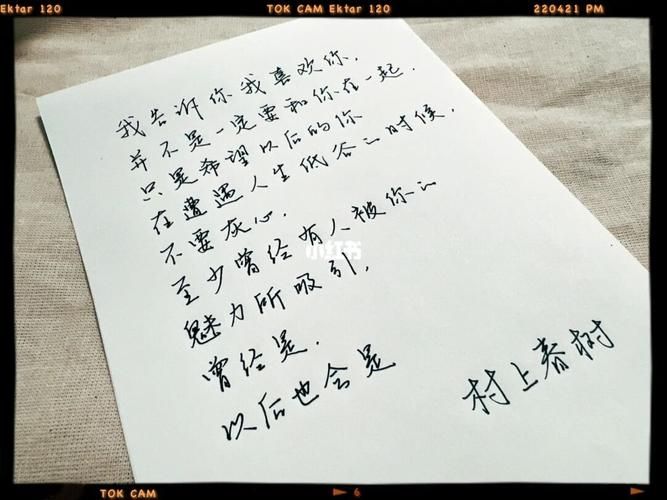 Ektar 120
TOK CAM Ektar 120
220421 PM
我告诉你我喜欢你，
并不是一定要和你在一起．
只是希望以后的你
在遭遇人生低谷的时候，
不要灰心．
至少曾经有人被你的
魅力所吸引，
曾经是．
以后也会是
村上春树
小红书
TOK CAM
6